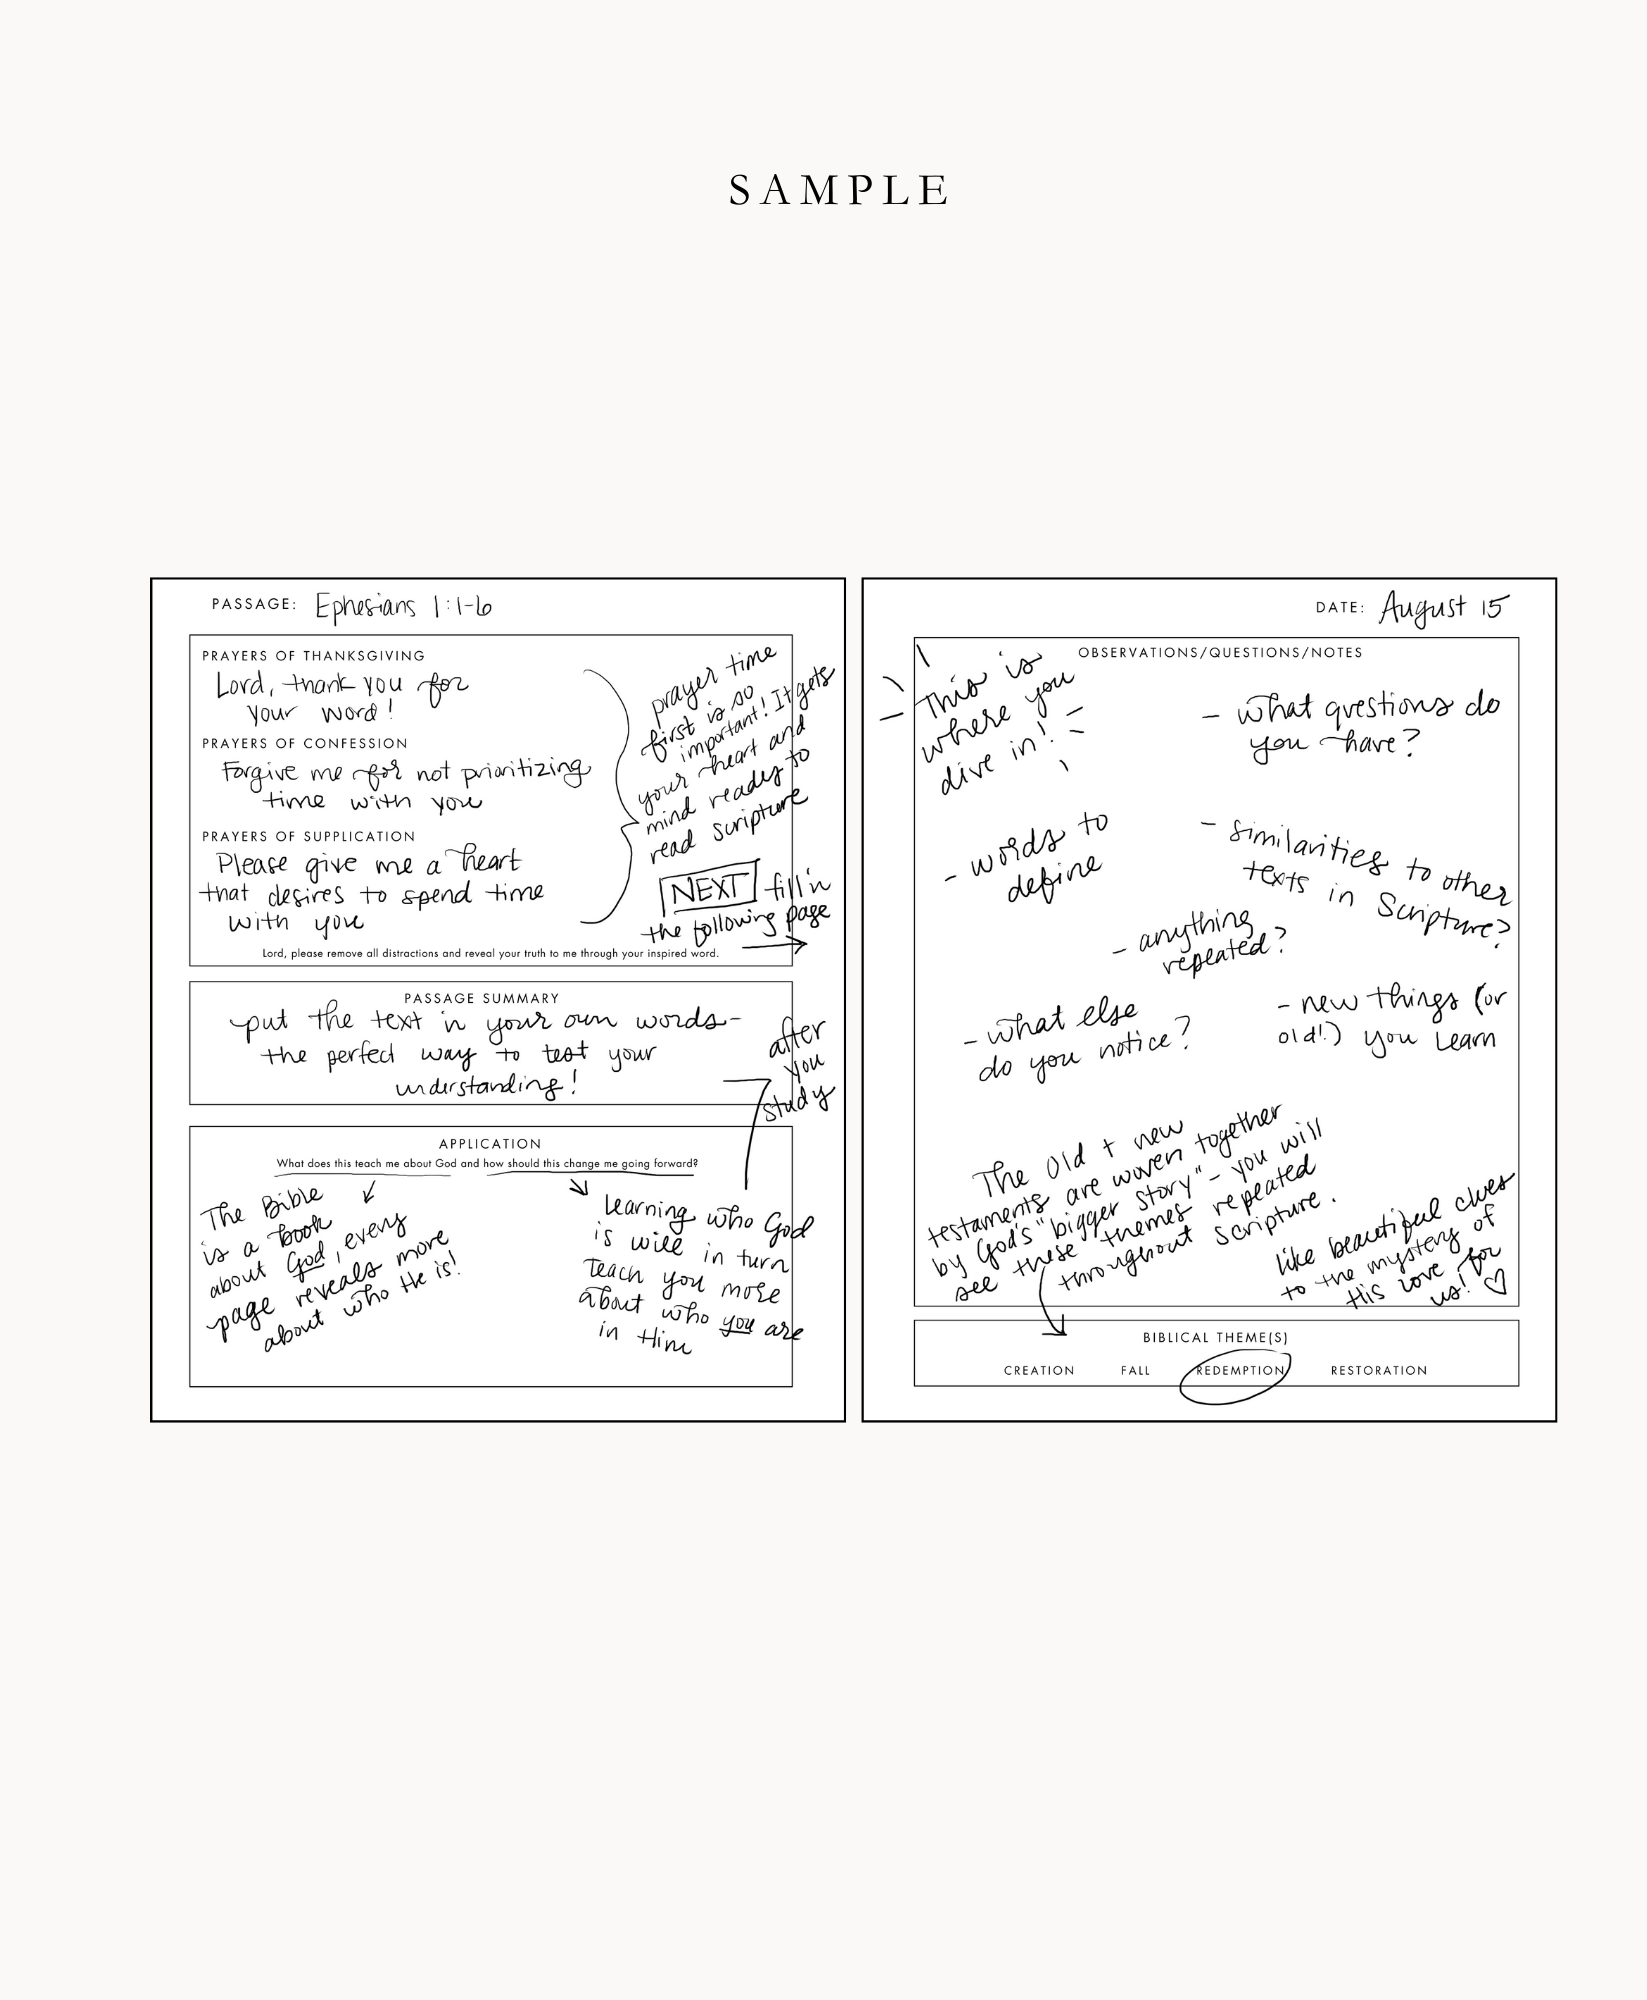 SAMPLE
PASSAGE: Ephesians 1:1-6
PRAYERS OF THANKSGIVING
Lord, thank you for
your word!
PRAYERS OF CONFESSION
Forgive me for not prioritizing
time with you
PRAYERS OF SUPPLICATION
Please give me a heart
that desires to spend time
with you
prayer time
first is so
important! It gets
your heart and
mind ready to
read scripture
NEXT fill in
the following page
Lord, please remove all distractions and reveal your truth to me through your inspired word.
PASSAGE SUMMARY
put the text in your own words-
the perfect way to test your
understanding!
after
you
study
APPLICATION
What does this teach me about God and how should this change me going forward?
The Bible
is a book
about God, every
page reveals more
about who He is!
Learning who God
is will in turn
teach you more
about who you are
in Him
DATE: August 15
OBSERVATIONS/QUESTIONS/NOTES
This is
where you
dive in!
- what questions do
you have?
- words to
define
- similarities to other
texts in Scripture?
- anything
repeated?
- what else
do you notice?
- new things (or
old!) you learn
The Old + new
testaments are woven together
by God's "bigger story" - you will
see these themes repeated
throughout Scripture.
like beautiful clues
to the mystery of
His love for
us! ♡
BIBLICAL THEME(S)
CREATION FALL REDEMPTION RESTORATION